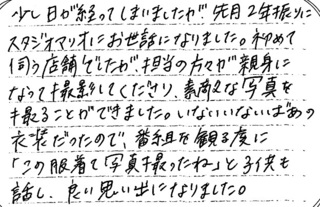 少し日が経ってしまいましたが、先月2年振りに
スタジオマリオにお世話になりました。初めて
伺う店舗でしたが、担当の方々が親身に
なって撮影してくださり、素敵な写真を
撮ることができました。いないいないばあの
衣装だったので、番組を観る度に
「この服着て写真撮ったね」と子供も
話し、良い思い出になりました。